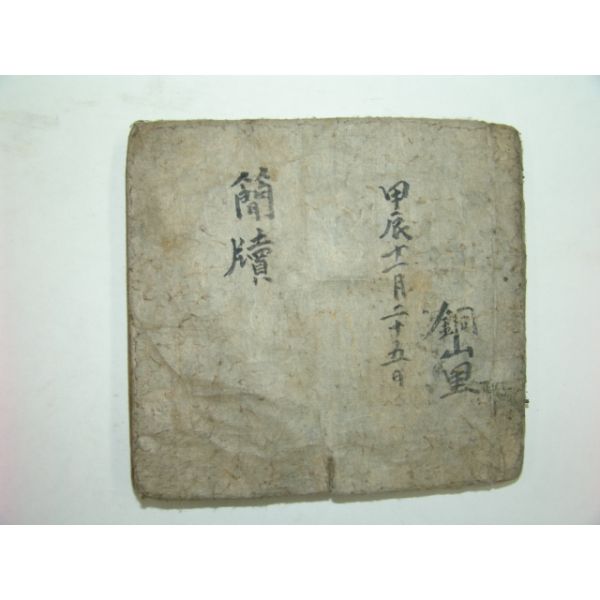 銅山里
甲辰十一月二十五日
簡牘